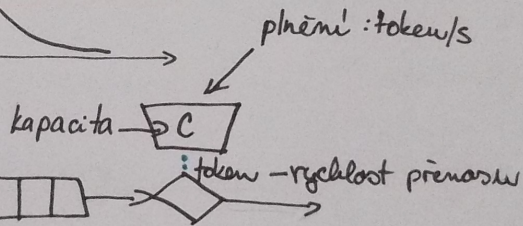 plnění : token/s
kapacita C
token - rychlost přenosu